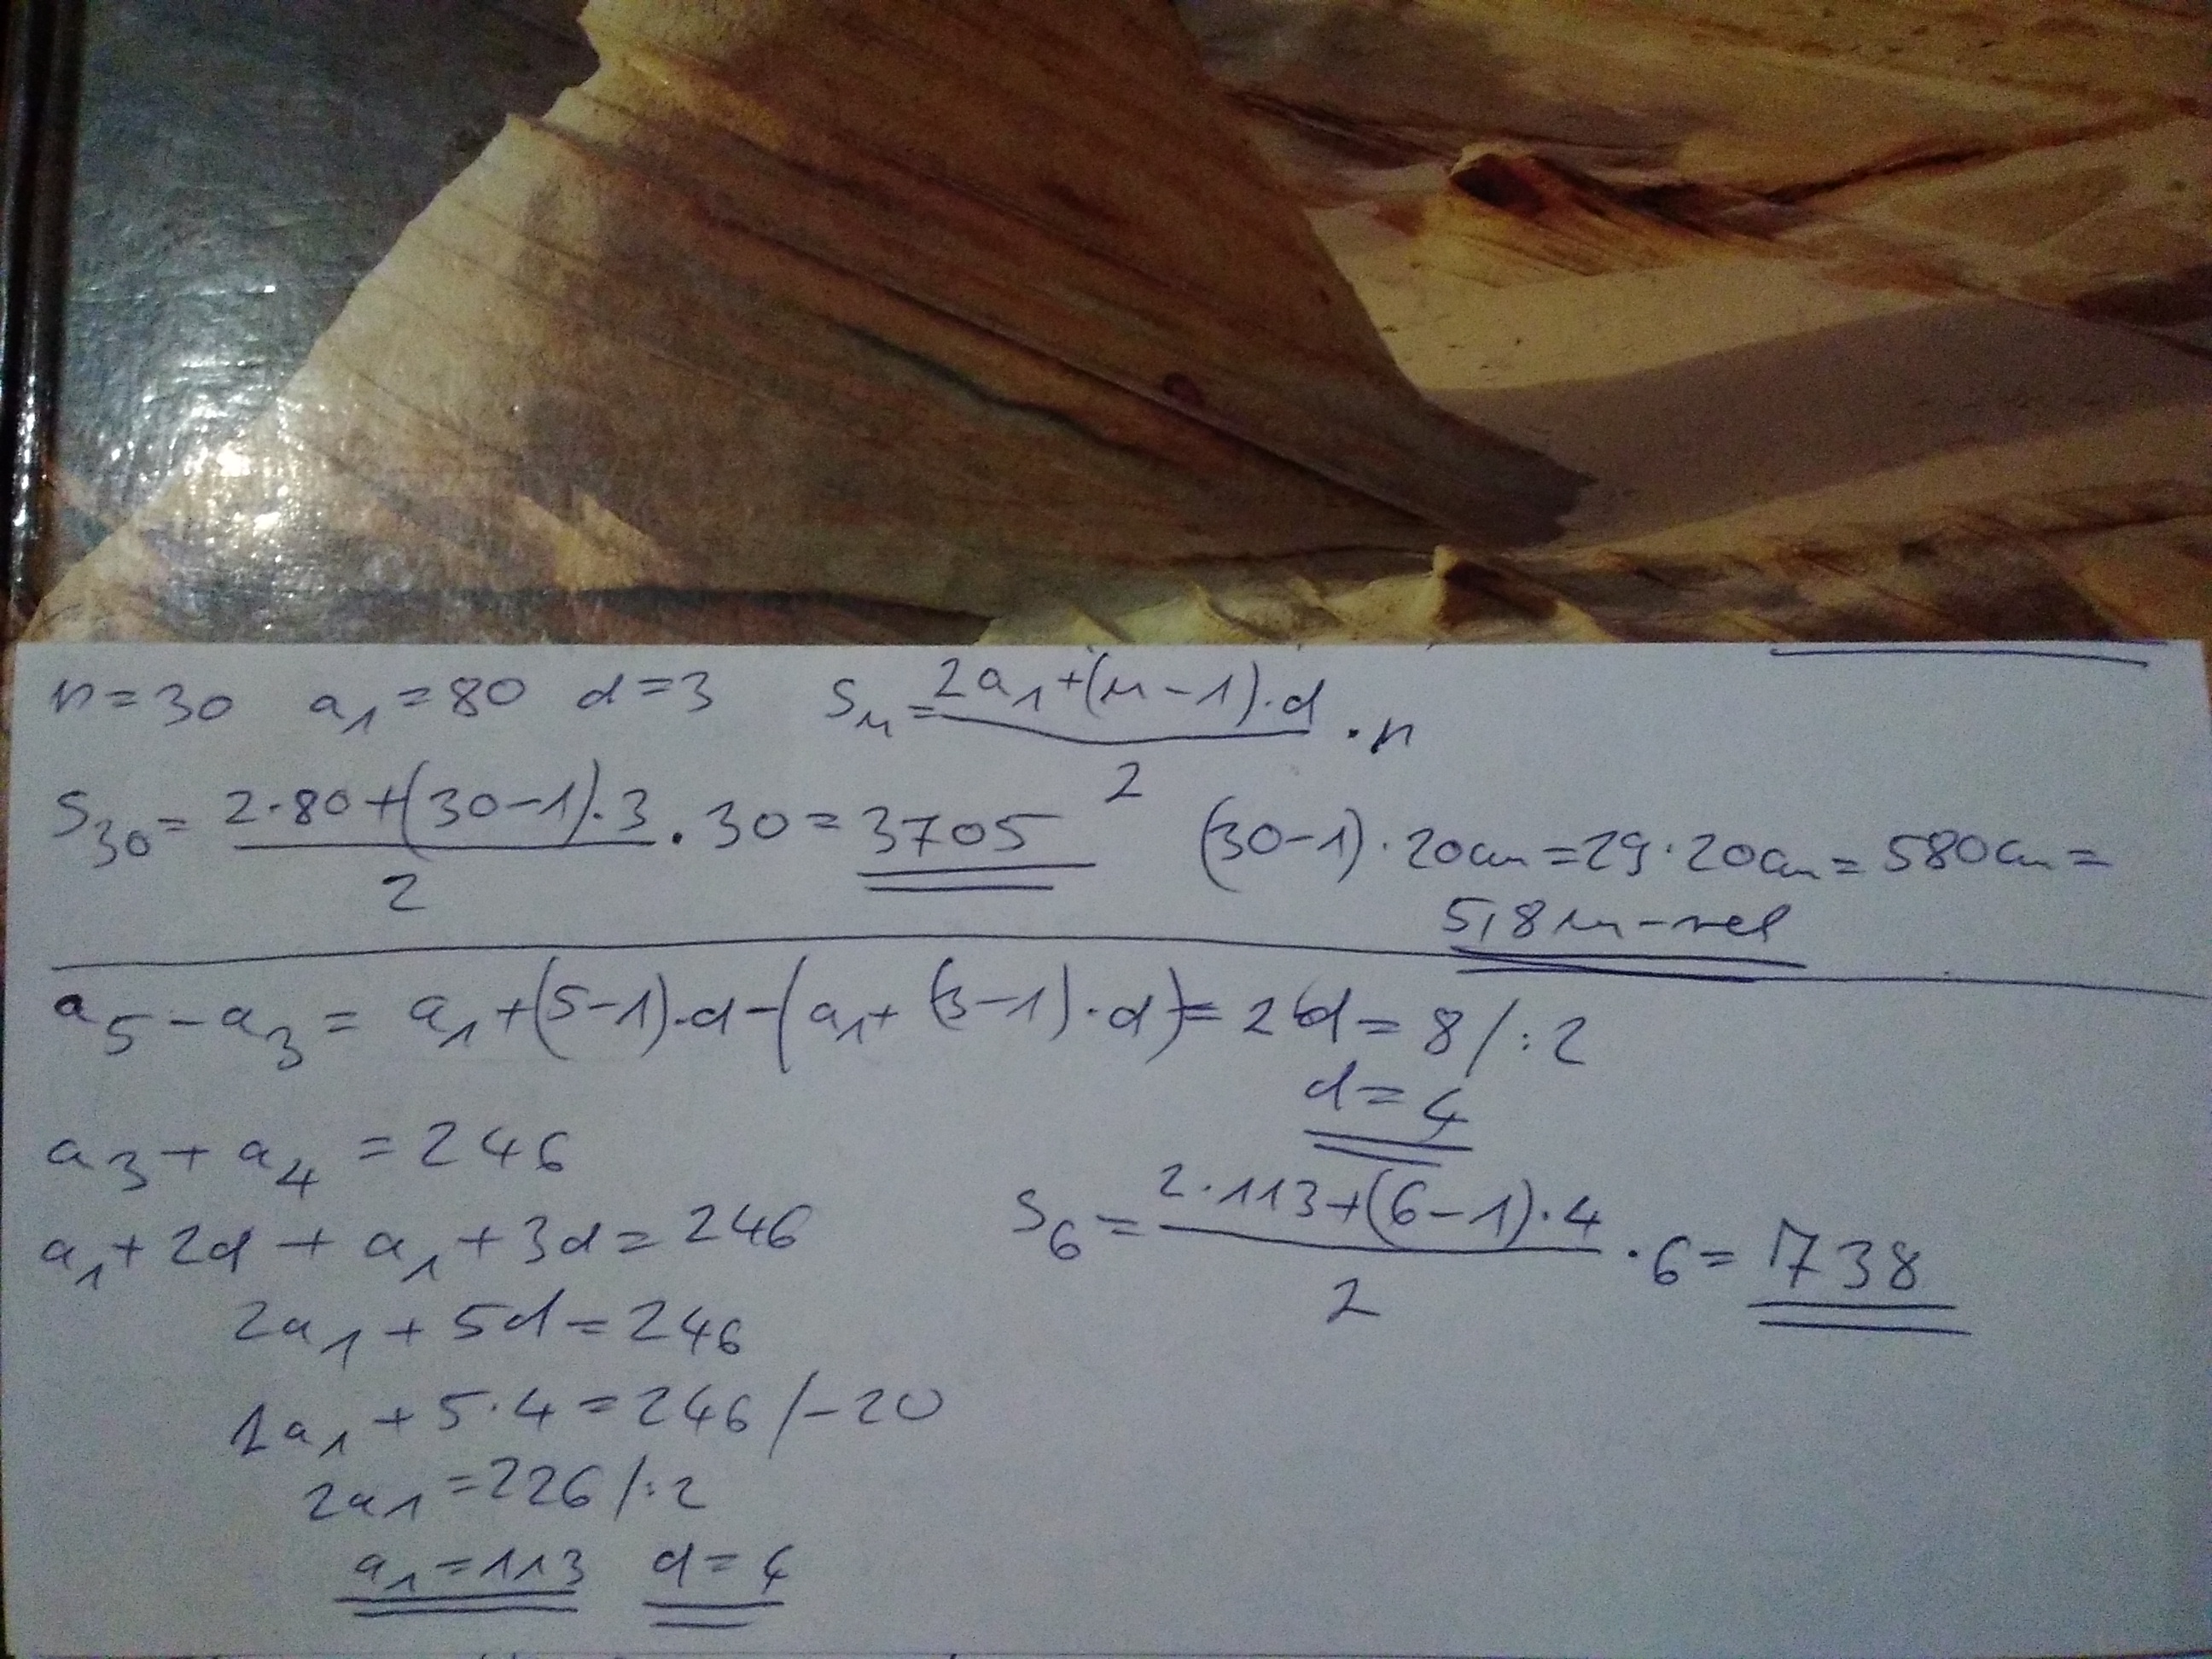 n=30 a₁=80 d=3 Sₙ=(2a₁+(n-1)·d)/2 · n
S₃₀=(2·80+(30-1)·3)/2 · 30=3705
(30-1)·20cm=29·20cm=580cm=
5,8m
a₅-a₃= a₁+(5-1)·d-(a₁+(3-1)·d)=2d=8/:2
d=4
a₃+a₄=246
a₁+2d+a₁+3d=246
2a₁+5d=246
2a₁+5·4=246/-20
2a₁=226/:2
a₁=113 d=4
S₆=(2·113+(6-1)·4)/2 · 6=738